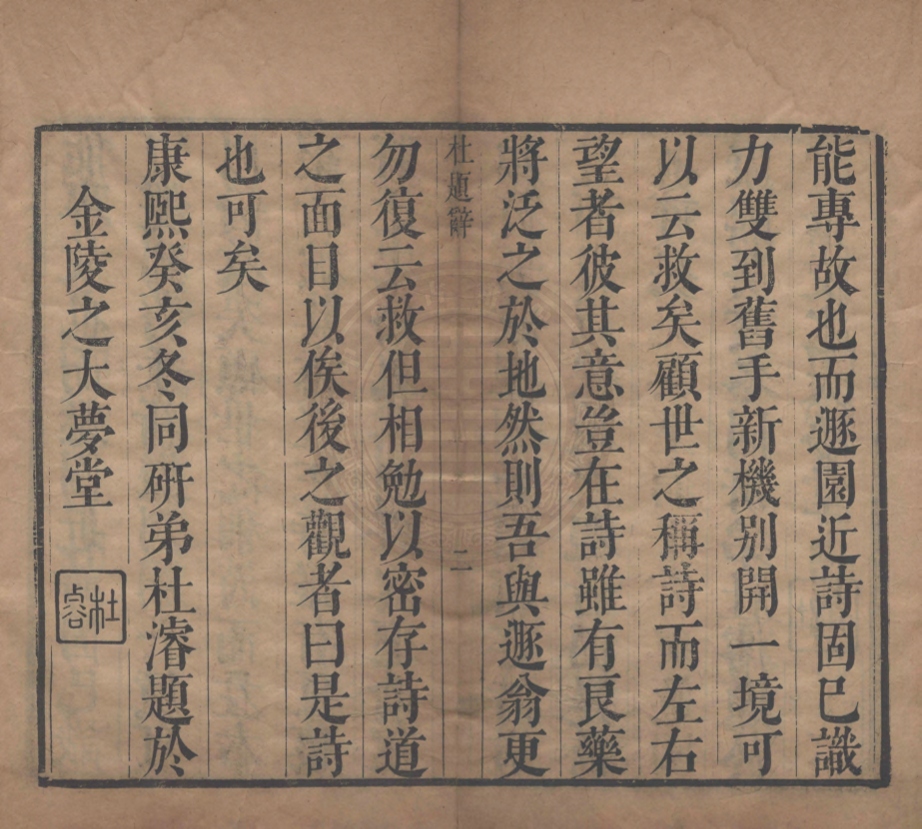 能專故也而遯園近詩固已識
力雙到舊手新機別開一境可
以云救矣顧世之稱詩而左右
望者彼其意豈在詩雖有良藥
將泛之於地然則吾與遯翁更
杜題辭
二
勿復云救但相勉以密存詩道
之面目以俟後之觀者曰是詩
也可矣
康熙癸亥冬同硏弟杜濬題於
金陵之大夢堂
杜